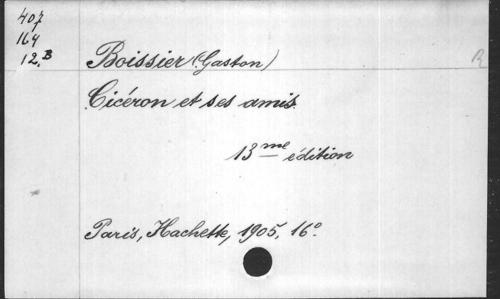 407
164
12.B
Boissier (Gaston)
R
Cicéron et ses amis.
13me édition
Paris, Hachette, 1905, 16°.